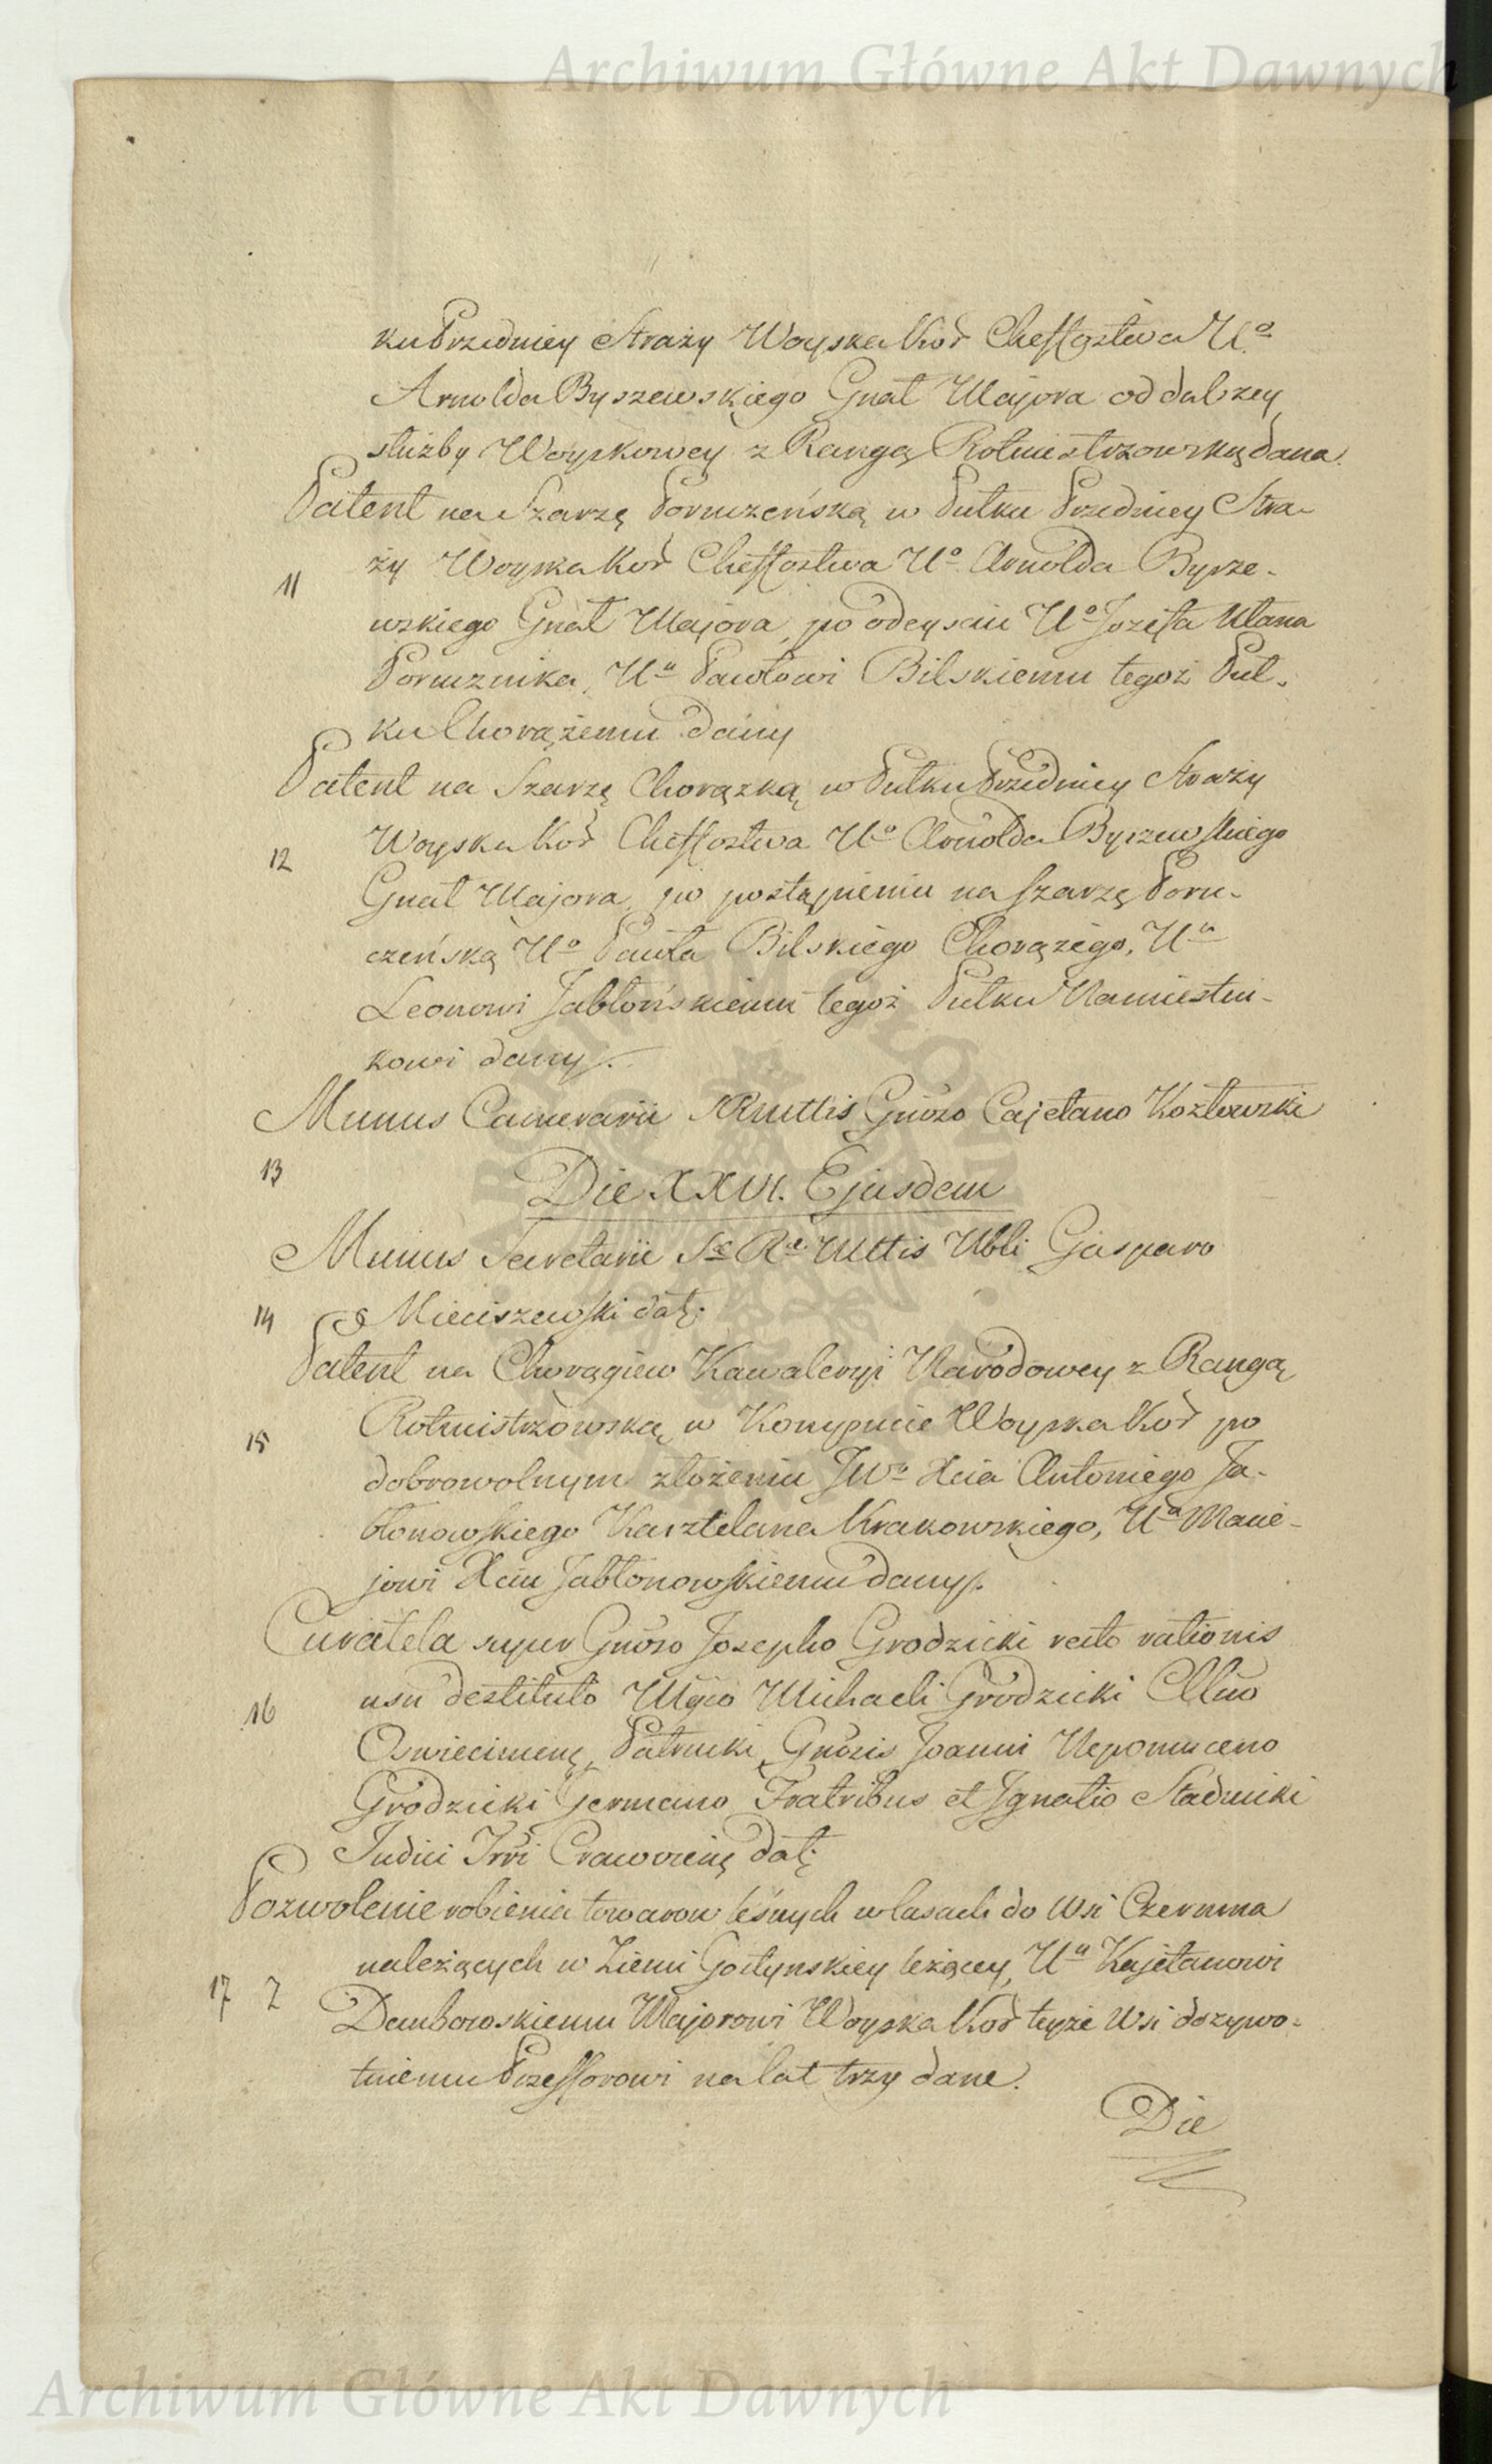 Archiwum Główne Akt Dawnych
ku Przedniey Straży Woyska Kor Cheffostwa Uº
Arnolda Byszewskiego Gnał Majora od dalszey
służby Woyskowey z Rangą Rotmistrzowską dana.
Patent na Szarżę Poruczeńską w Pułku Przedniey Stra-
ży Woyska Kor Cheffostwa Uº Arnolda Bysze-
11
wskiego Gnał Majora, po odeysciu Uº Jozefa Ułana
Porucznika, Uu Pawłowi Bilskiemu tegoż Puł-
ku Chorążemu dany
Patent na Szarżę Chorążką w Pułku Przedniey Straży
Woyska Kor Cheffostwa Uº Arnolda Byszewskiego
12
Gnał Majora, po postąpieniu na Szarżę Poru-
czeńską Uº Pawła Bilskiego Chorążego, Uu
Leonowi Jabłońskiemu tegoż Pułku Namiestni-
kowi dany.
Munus Camerarii SRMttis Gnoso Cajetano Kozłowski
13
Die XXVI. Ejusdem
Munus Secretarii Sæ Ræ Mttis Nbli Gasparo
14
Mieciszewski dat:
Patent na Chorągiew Kawaleryi Narodowey z Rangą
Rotmistrzowską w Kompucie Woyska Kor po
15
dobrowolnym złożeniu JWº Xcia Antoniego Ja-
błonowskiego Kasztelana Krakowskiego, Uu Macie-
jowi Xciu Jabłonowskiemu dany.
Curatela super Gnoso Josepho Grodzicki recto rationis
usu destituto Mgco Michaeli Grodzicki
16
Oswiecimens Patrueli, Gnosis Joanni Nepomuceno
Grodzicki Germano Fratribus et Ignatio Stadnicki
Judici Trri Cracoviens dat:
Pozwolenie robienia towarow leśnych w lasach do Wsi Czermna
należących w Ziemi Gostynskiey leżącey, Uu Kajetanowi
17 Z
Dembowskiemu Majorowi Woyska Kor teyże Wsi dożywo-
tniemu Possessorowi na lat trzy dane.
Die
Archiwum Główne Akt Dawnych